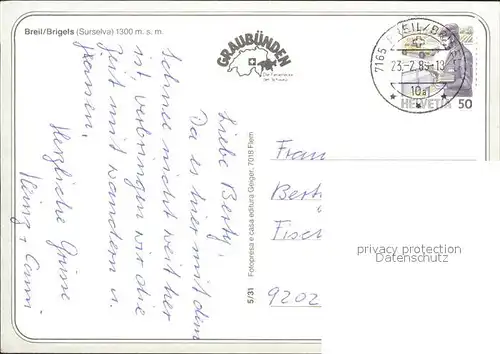 Breil/Brigels (Surselva) 1300 m. s. m.
GRAUBÜNDEN
Die Ferienecke
der Schweiz
7165 BREIL/BRIGELS
23.-2.89-18
10a
HELVETIA 50
Liebe Berty,
Da es hier mit dem
Schnee nicht weit her
ist, verbringen wir die
Zeit mit wandern u.
jassen.
Herzliche Grüsse
Heinz + Anni
5/31 Fotopresa e casa editura Geiger, 7018 Flem
Frau
Bert
Fisch
9202
privacy protection
Datenschutz